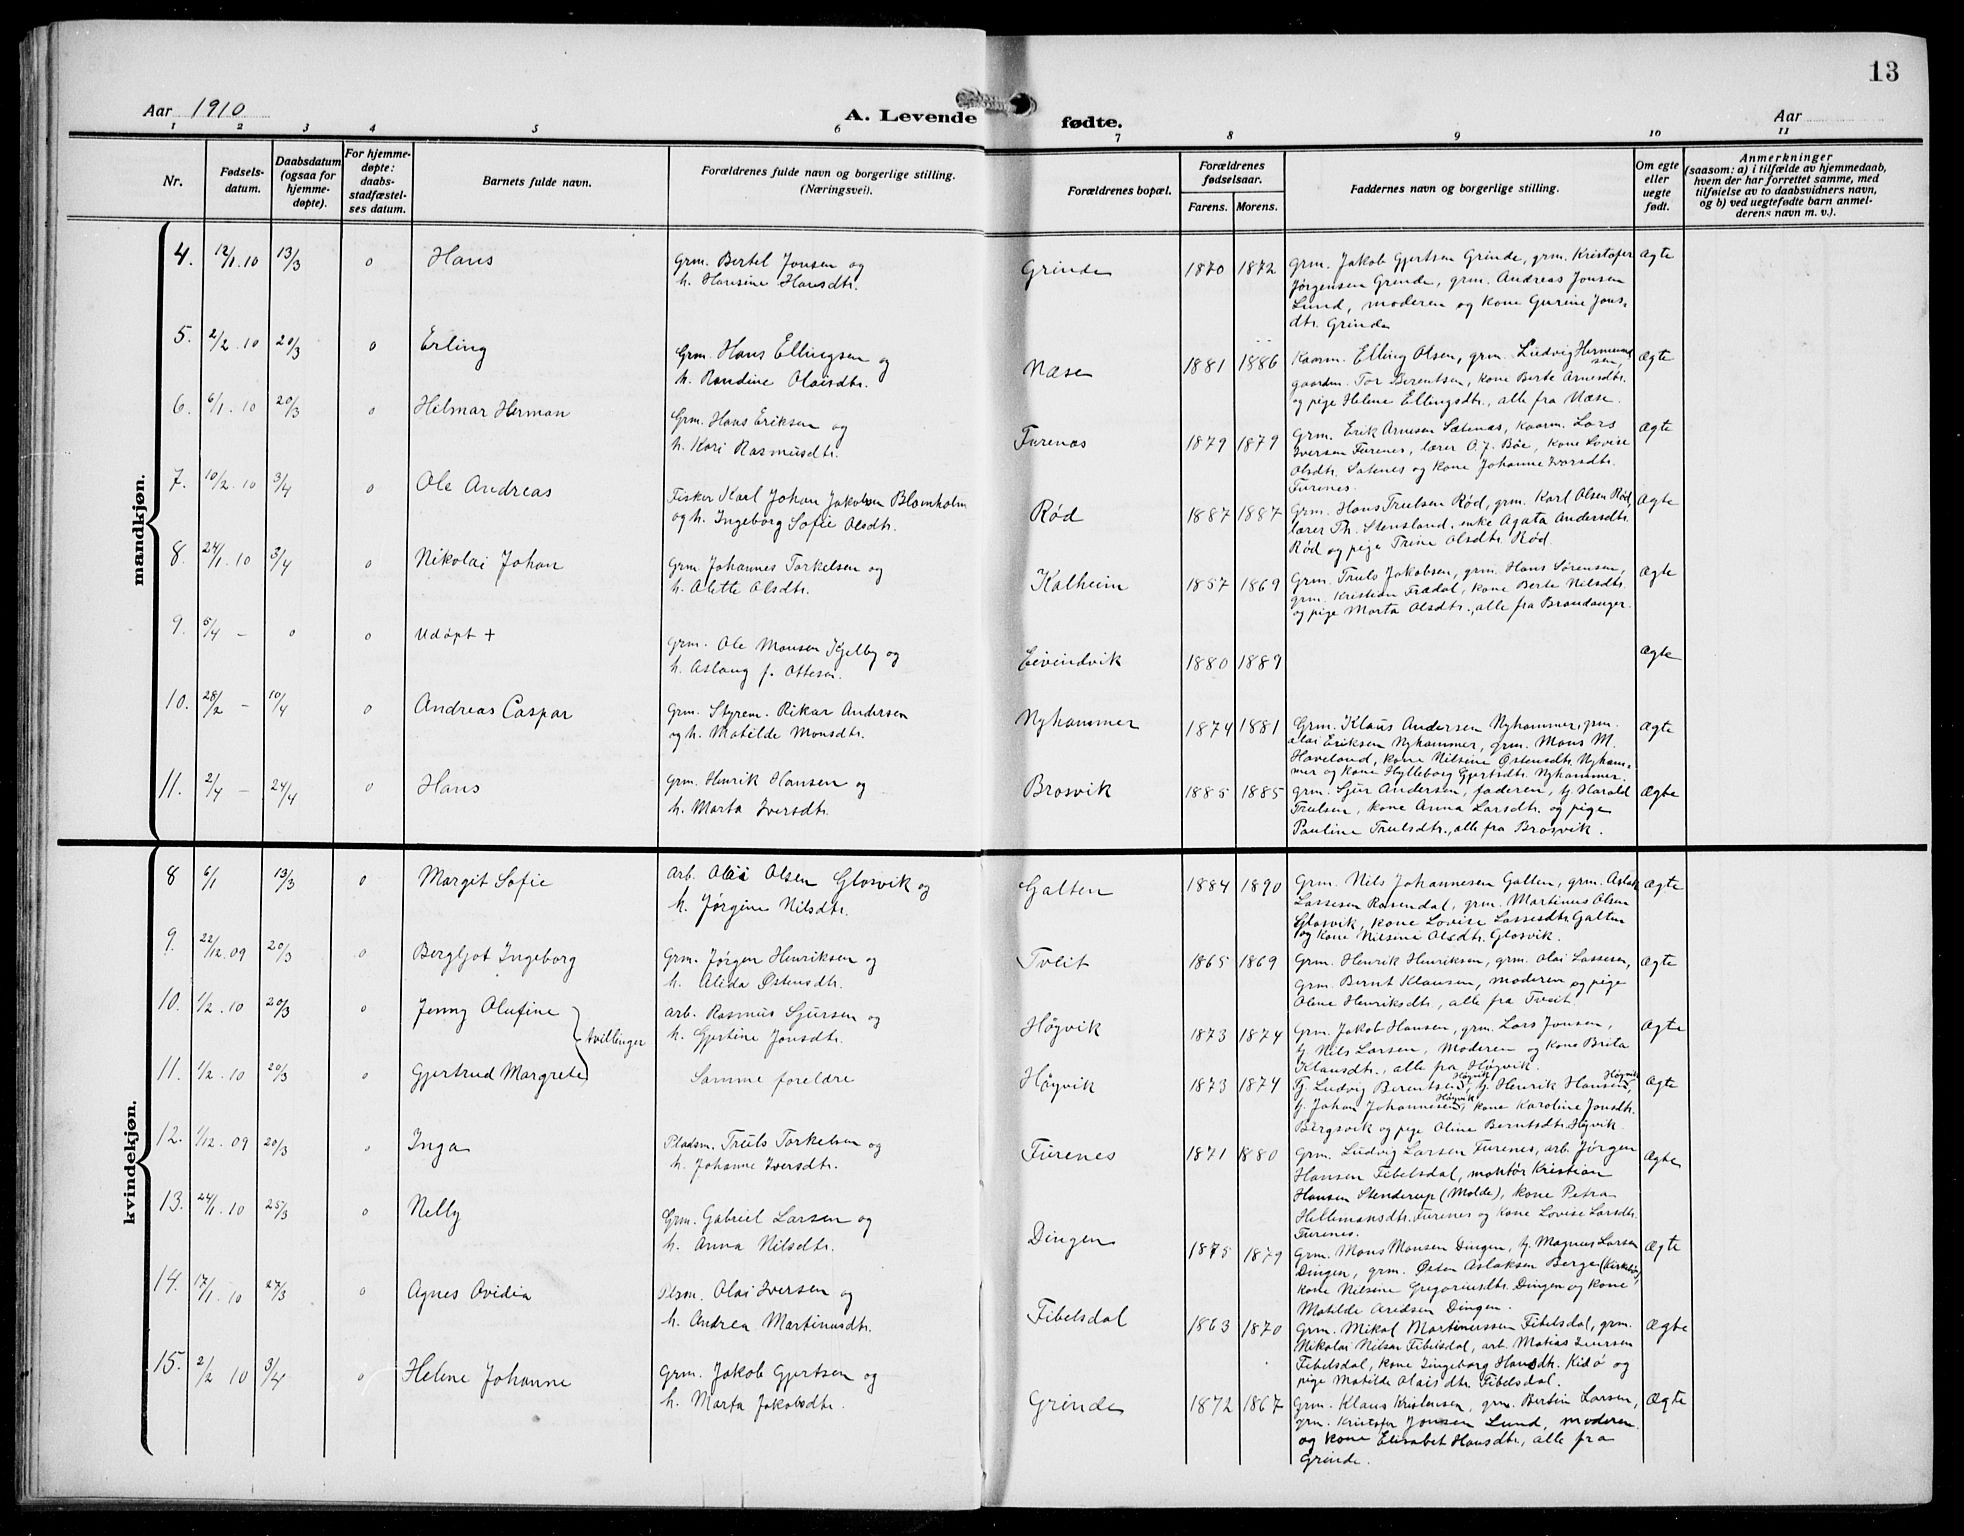 13
Aar 1910
A. Levende fødte.
Aar
1 2 3 4 5 6 7 8 9 10 11
Nr.
Fødsels-
datum.
Daabsdatum
(ogsaa for
hjemme-
døpte).
For hjemme-
døpte:
daabs-
stadfæstel-
ses datum.
Barnets fulde navn.
Forældrenes fulde navn og borgerlige stilling.
(Næringsvei).
Forældrenes bopæl.
Forældrenes
fødselsaar.
Farens. Morens.
Faddernes navn og borgerlige stilling.
Om egte
eller
uegte
født.
Anmerkninger
(saasom: a) i tilfælde av hjemmedaab,
hvem der har forrettet samme, med
tilføielse av to daabsvidners navn,
og b) ved uegtefødte barn anmel-
derens navn m. v.).
mandkjøn.
4. 12/1. 10 13/3 o Hans
Grm. Bertel Jonsen og
h. Hansine Hansdtr.
Grinde 1870 1872
Grm. Jakob Gjertsen Grinde, grm. Kristofer
Jørgensen Grinde, grm. Andreas Jonsen
Lund, moderen og kone Gurine Jons-
dtr. Grinde
Ægte
5. 2/2. 10 20/3 o Erling
Grm. Hans Ellingsen og
h. Randine Olaisdtr.
Næse 1881 1886
Kaarm. Elling Olsen, grm. Ludvig Hermund
sen,
gaardm. Tor Berentsen, kone Berte Arnesdtr.
og pige Helene Ellingsdtr., alle fra Næse.
Ægte
6. 6/1. 10 20/3 o Hilmar Herman
Grm. Hans Eriksen og
h. Kari Rasmusdtr.
Furenes 1879 1879
Grm. Erik Arnesen Sætenæs, kaarm. Lars
Iversen Furenes, lærer O. J. Bøe, kone Lovise
Olsdtr. Satenes og kone Johanne Iversdtr.
Furenes.
Ægte
7. 10/2. 10 3/4 o Ole Andreas
Fisker Karl Johan Jakobsen Blomholm
og h. Ingeborg Sofie Olsdtr.
Rød 1887 1887
Grm. Hans Trulsen Rød, grm. Karl Olsen Rød,
lærer Th. Stensland, enke Agata Andersdtr.
Rød og pige Trine Olsdtr. Rød.
Ægte
8. 24/1. 10 3/4 o Nikolai Johan
Grm. Johannes Torkelsen og
h. Alette Olsdtr.
Kalheim 1857 1869
Grm. Truls Jakobsen, grm. Hans Sørensen,
grm. Kristian Frædal, kone Berte Nilsdtr.
og pige Marta Olsdtr., alle fra Brandanger.
Ægte
9. 5/4 - o o Udøpt +
Grm. Ole Monsen Kjelby og
h. Aslaug f. Ottesen.
Eivindvik 1880 1889
Ægte
10. 28/2 - 10/4 o Andreas Caspar
Grm. Styrem. Rikar Andersen
og h. Matilde Monsdtr.
Nyhammer 1874 1881
Grm. Klaus Andersen Nyhammer, grm.
Olai Eriksen Nyhammer, grm. Mons M.
Haveland, kone Nilsine Østensdtr. Nyham-
mer og kone Hylleborg Gjertsdtr. Nyhammer.
Ægte
11. 2/4 - 24/4 o Hans
Grm. Henrik Hansen og
h. Marta Iversdtr.
Brosvik 1885 1885
Grm. Sjur Andersen, faderen, tj. Harald
Trulsen, kone Anna Larsdtr. og pige
Pauline Trulsdtr., alle fra Brosvik.
Ægte
kvindekjøn.
8 6/1 13/3 o Margit Sofie
Arb. Olai Olsen Glosvik og
h. Jørgine Nilsdtr.
Galten 1884 1890
Grm. Nils Johannesen Galten, grm. Aslak
Lassesen Rosendal, grm. Martinus Olsen
Glosvik, kone Lovise Lassesdtr. Galten
og kone Nilsine Olsdtr. Glosvik.
Ægte
9. 22/12. 09 20/3 o Bergljot Ingeborg
Grm. Jørgen Henriksen og
h. Alida Østensdtr.
Tveit 1865 1869
Grm. Henrik Henriksen, grm. Olai Lassesen,
grm. Bernt Klausen, moderen og pige
Oline Henriksdtr., alle fra Tveit.
Ægte
10. 1/2. 10 20/3 o Jenny Olufine
tvillinger
arb. Rasmus Sjursen og
h. Gjertine Jonsdtr.
Høgvik 1873 1874
Grm. Jakob Hansen, grm. Lars Jonsen,
tj. Nils Larsen, moderen og kone Brita
Klausdtr., alle fra Høgvik.
Ægte
11. 1/2. 10 20/3 o Gjertrud Margrete
Samme foreldre
Høgvik 1873 1874
Tj. Ludvig Berentsen Høgvik, tj. Henrik Hansen Høgvik,
tj. Johan Johannesen Høgvik, kone Karoline Jonsdtr.
Børgsvik og pige Oline Berntsdtr. Høgvik.
Ægte
12. 1/12. 09 20/3 o Inga
Pladsm. Truls Torkelsen og
h. Johanne Iversdtr.
Furenes 1871 1880
Grm. Ludvig Larsen Furenes, arb. Jørgen
Hansen Fibelsdal, montør Kristian
Hansen Stenderup (Molde), kone Petra
Hellemansdtr. Furenes og kone Lovise Larsdtr.
Furenes.
Ægte
13. 24/1. 10 25/3 o Nelly
Grm. Gabriel Larsen og
h. Anna Nilsdtr.
Dingen 1875 1879
Grm. Mons Monsen Dingen, tj. Magnus Larsen
Dingen, grm. Østen Aslaksen Berge (Kirkebø),
kone Nilsine Gregoriusdtr. Dingen og kone
Matilde Aredsen Dingen.
Ægte
14. 17/1. 10 27/3 o Agnes Ovidia
Plsm. Olai Iversen og
h. Andrea Martinusdtr.
Fibelsdal 1863 1870
Grm. Mikal Martinussen Fibelsdal, grm.
Nikolai Nilsen Fibelsdal, arb. Matias Iversen
Fibelsdal, kone Ingeborg Hansdtr. Kidø og
pige Matilde Olaisdtr. Fibelsdal.
Ægte
15. 2/2 10 3/4 o Helene Johanne
Grm. Jakob Gjertsen og
h. Marta Jakobsdtr.
Grinde 1872 1867
Grm. Klaus Kristensen, grm. Bertin Larsen,
grm. Kristofer Jonsen Lund, moderen
og kone Elisabet Hansdtr., alle fra
Grinde.
Ægte